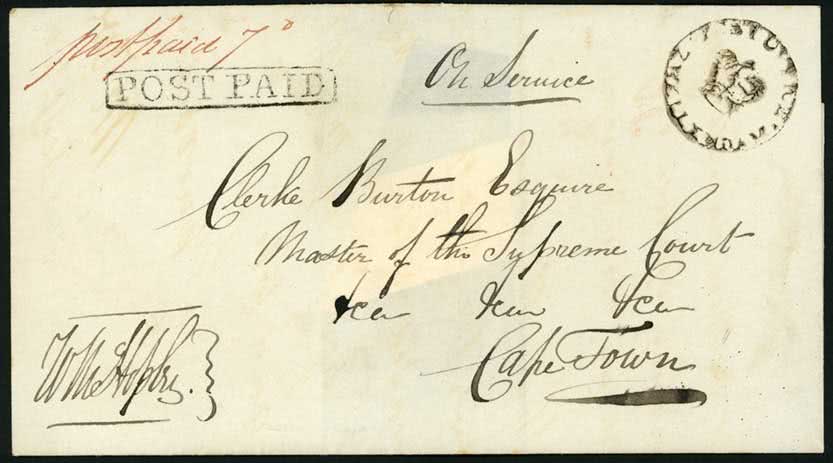 postpaid 7d
POST PAID
On Service
Clerke Burton Esquire
Master of the Supreme Court
&ca &ca &ca
Cape Town